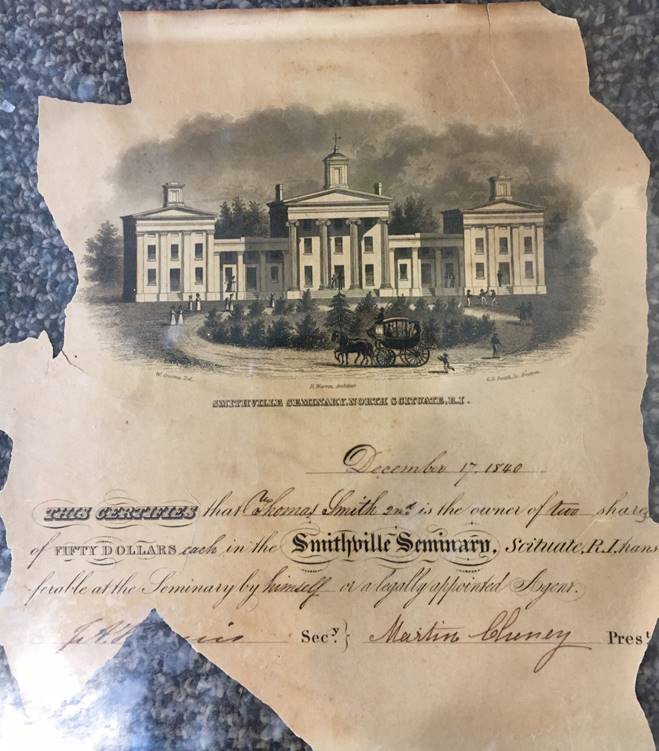 R. Warren, Architect
SMITHVILLE SEMINARY, NORTH SCITUATE, R.I.
December 17, 1840
THIS CERTIFIES that Thomas Smith 2nd is the owner of two share
of FIFTY DOLLARS each in the Smithville Seminary, Scituate, R.I. trans
ferable at the Seminary by himself or a legally appointed Agent.
Secy. } Martin Cheney Prest